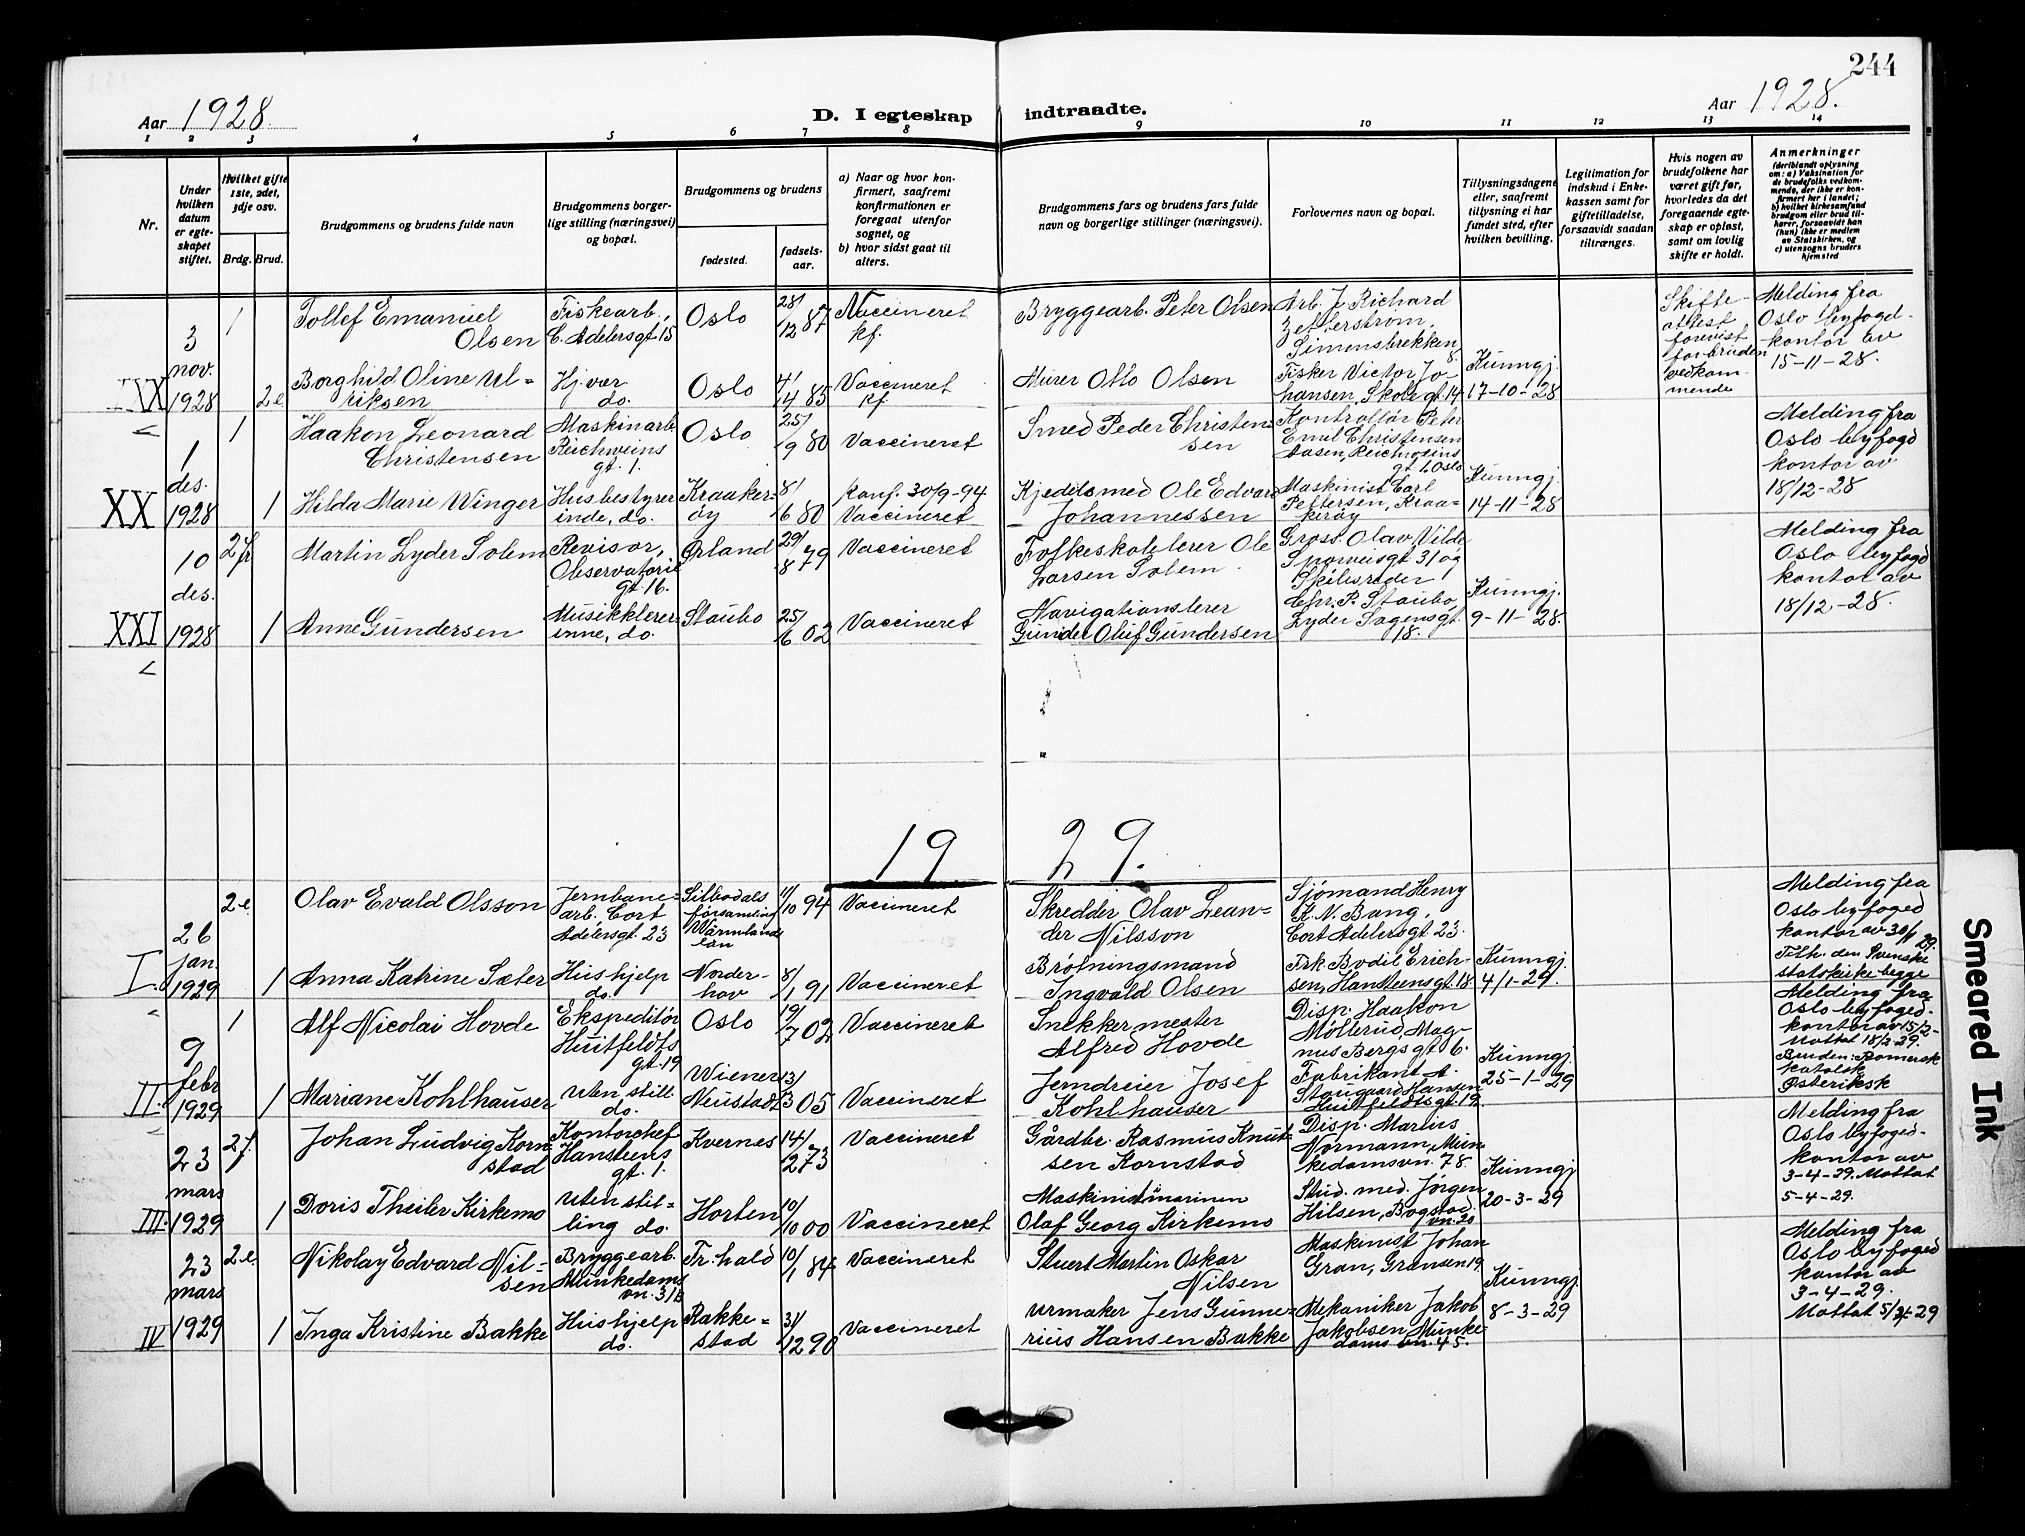 244
Aar 1928.
D. I egteskap
indtraadte.
Aar 1928.
1 2 3 4 5 6 7 8 9 10 11 12 13 14
Nr.
Under hvilken datum er egteskapet stiftet.
Hvilket gifte 1ste, 2det, 3dje osv.
Brdg. Brud.
Brudgommens og brudens fulde navn
Brudgommens borgerlige stilling (næringsvei) og bopæl.
Brudgommens og brudens
fødested.
fødselsaar.
a) Naar og hvor konfirmert, saafremt konfirmationen er foregaat utenfor sognet, og
b) hvor sidst gaat til alters.
Brudgommens fars og brudens fars fulde navn og borgerlige stillinger (næringsvei).
Forlovernes navn og bopæl.
Tillysningsdagene eller, saafremt tillysning ei har fundet sted, efter hvilken bevilling.
Legitimation for indskud i Enkekassen samt for giftetilladelse, forsaavidt saadan tiltrænges.
Hvis nogen av brudefolkene har været gift før, hvorledes da det foregaaende egteskap er opløst, samt om lovlig skifte er holdt.
Anmerkninger
(deriblandt oplysning om: a) Vaksination for de brudefolks vedkommende, der ikke er konfirmert her i landet; b) hvilket kirkesamfund brudgom eller brud tilhører, forsaavidt han (hun) ikke er medlem av Statskirken, og c) utensogns bruders hjemsted
IXX 3 nov. 1928
1 Tollef Emanuel Olsen
Fiskearb., C. Adelersgt. 15
Oslo 28/12 87 Vaccineret kf.
Bryggearb. Peter Olsen
Arb. J. Richard Zetterstrøm, Simensbrekken 8.
2e Borghild Oline Ulriksen
Hj.vær do.
Oslo 4/14 85 Vaccineret kf.
Murer Otto Olsen
Fisker Victor Johansen, Skole gt. 14
Kunngj. 17-10-28
Skifteattest forevist for bruden vedkommende
Melding fra Oslo byfogdkontor av 15-11-28.
XX 1 des. 1928
1 Haakon Leonard Christensen
Maskinarb. Reichweins gt. 1.
Oslo 25/9 80 Vaccineret
Smed Peder Christensen
Kontrollør Peter Emil Christensen Aasen, Reichweins gt. 1, Oslo
1 Hilda Marie Winger
Husbestyrerinde, do.
Kraakerøy 8/6 80 Konf. 30/9-94 Vaccineret
Kjedelsmed Ole Edvard Johannessen
Maskinist Carl Pettersen, Kraakerøy
Kunngj. 14-11-28
Melding fra Oslo byfogd kontor av 18/12-28
XXI 10 des. 1928
2 fr Martin Lyder Solem
Revisor, Observatorie gt. 16.
Ørland 29/8 79 Vaccineret
Folkeskolelærer Ole Larsen Solem
Gross. Olav Vilde Sporveisgt 31 og Skibsreder
1 Anne Gundersen
Musikklærerinne, do.
Staubo 25/6 02 Vaccineret
Navigationslærer Gunder Oluf Gundersen
Chr. P. Staubo, Lyder Sagensgt. 18.
Kunngj. 9-11-28.
Melding fra Oslo byfogd kontor av 18/12-28.
19 29.
I. 26 jan. 1929
2e Olav Evald Olsson
Jernbanearb. Cort Adelersgt. 23
Silbodals församling Värmlands län 11/10 94 Vaccineret
Skredder Olav Leander Nilsson
Sjømand Henry K. N. Bang, Cort Adelersgt. 23.
1 Anna Katrine Sæter
Hushjelp do.
Norderhov 8/1 91 Vaccineret
Brøtningsmand Ingvald Olsen
Frk Bodil Erichsen, Hansteensgt. 18
Kunngj. 4/1-29.
Melding fra Oslo byfoged kontor av 30/1 29. Tilh. den Svenske statskirke begge
II. 9 febr 1929
1 Alf Nicolai Hovde
Ekspeditør Huitfeldts gt. 19
Oslo 19/7 02 Vaccineret
Snekkermester Alfred Hovde
Disp. Haakon Møllerud, Magnus Bergs gt 6.
1 Mariane Kohlhauser
Uten still. do.
Wiener Neustadt 13/3 05 Vaccineret
Jerndreier Josef Kohlhauser
Fabrikant A. Stougaard Hansen Huitfeldtsgt. 19.
Kunngj. 25-1-29
Melding fra Oslo byfogedkontor av 15/2- Mottat 18/2-29. Bruden: Romersk katolsk Østeriksk
III. 23 mars 1929
2 f. Johan Ludvig Kornstad
Kontorchef Hansteens gt. 1.
Kvernes 14/2 73 Vaccineret
Gårdbr. Rasmus Knutsen Kornstad
Disp. Marius Normann, Munkedamsvn. 78.
1 Doris Theiler Kirkemo
Uten stilling do.
Horten 10/10 00 Vaccineret
Maskinist i marinen Olaf Georg Kirkemo
Stud. med. Jørgen Hilsen, Bogstad vn. 20
Kunngj 20-3-29
Melding fra Oslo byfogedkontor av 3-4-29. Mottat 5-4-29.
IV 23 mars 1929
2e. Nikolay Edvard Nilsen
Bryggearb. Munkedams vn. 31B
Fr. hald 10/1 84 Vaccineret
Stuert Martin Oskar Nilsen
Maskinist Johan Gran, Grønsen 19
1 Inga Kristine Bakke
Hushjelp do.
Rakkestad 31/12 90 Vaccineret
Urmaker Jens Gunnerius Hansen Bakke
Mekaniker Jakob Jakobsen Munkedams vn. 45.
Kunngj. 8-3-29
Melding fra Oslo byfoged kontor av 3-4-29. Mottat 5/4-29
Smeared Ink